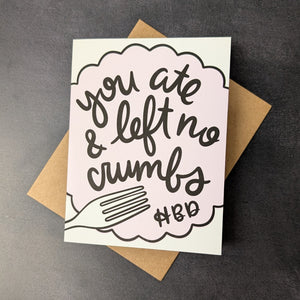 you ate
& left no
crumbs
HBD